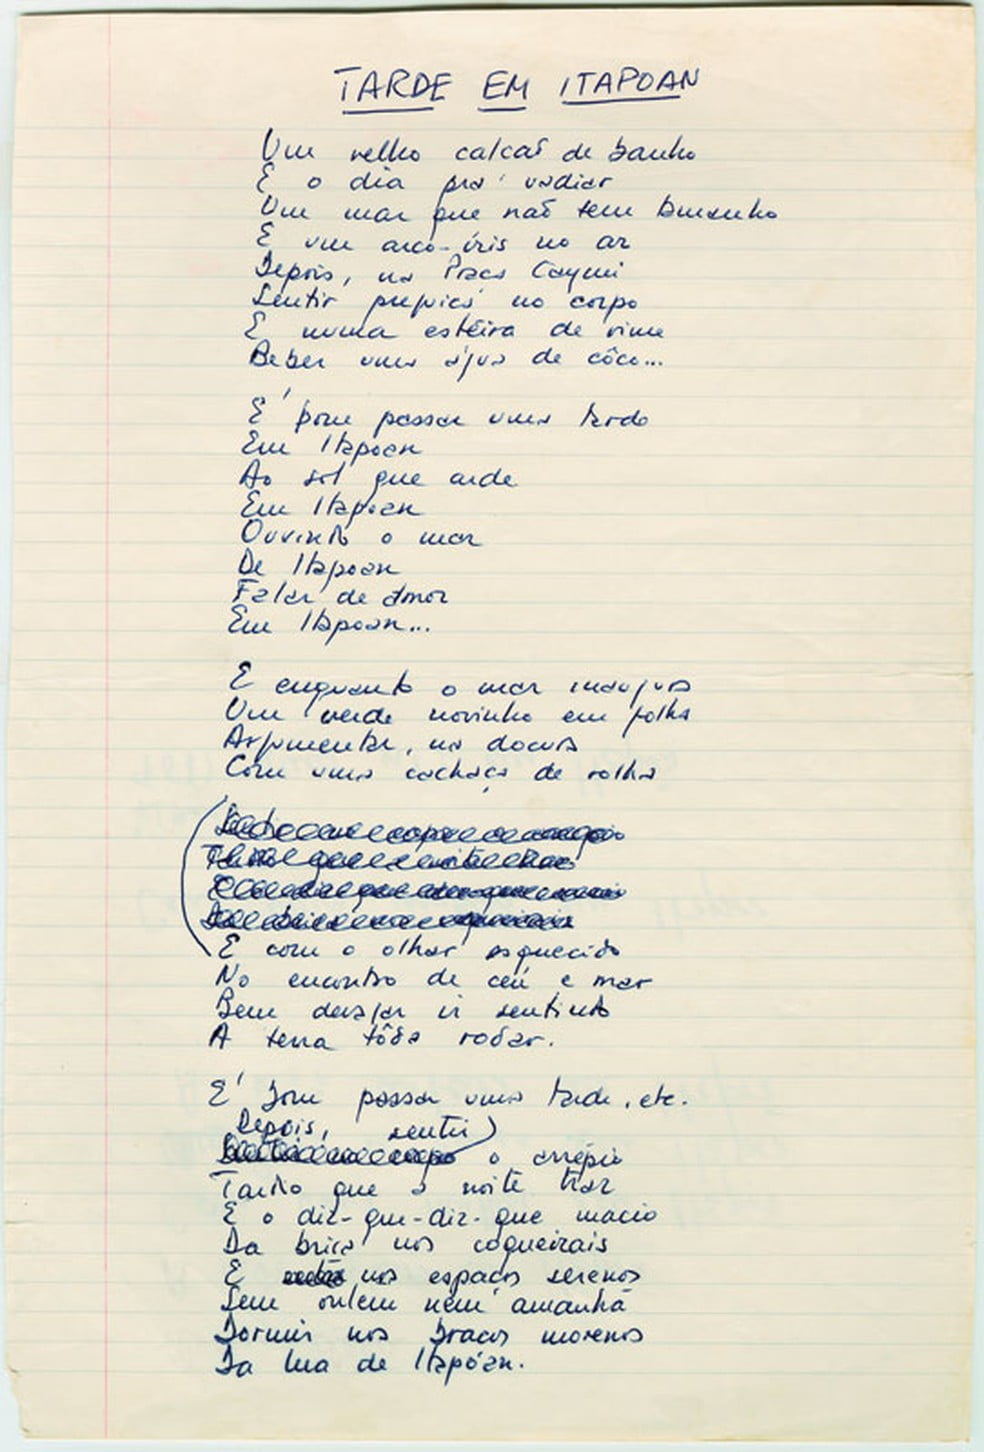 TARDE EM ITAPOAN
Um velho calção de banho
E o dia pra vadiar
Um mar que não tem tamanho
E um arco-íris no ar
Depois, na Praça Caymi
Sentir preguiça no corpo
E numa estéira de vime
Beber uma água de côco...
É bom passar uma tarde
Em Itapoan
Ao sol que arde
Em Itapoan
Ouvindo o mar
De Itapoan
Falar de amor
Em Itapoan...
E enquanto o mar inaugura
Um verde novinho em folha
Argumentar, na doçura
Com uma cachaça de rolha
E com o olhar esquecido
No encontro de céu e mar
Bem devagar ir sentindo
A terra tôda rodar.
É bom passar uma tarde, etc.
Depois, sentir
o arrépio
Tanto que a noite traz
E o diz-que-diz-que macio
Da brisa nos coqueirais
E nos espaços serenos
Sem ontem nem amanhã
Dormir nos braços morenos
Da lua de Itapóan.